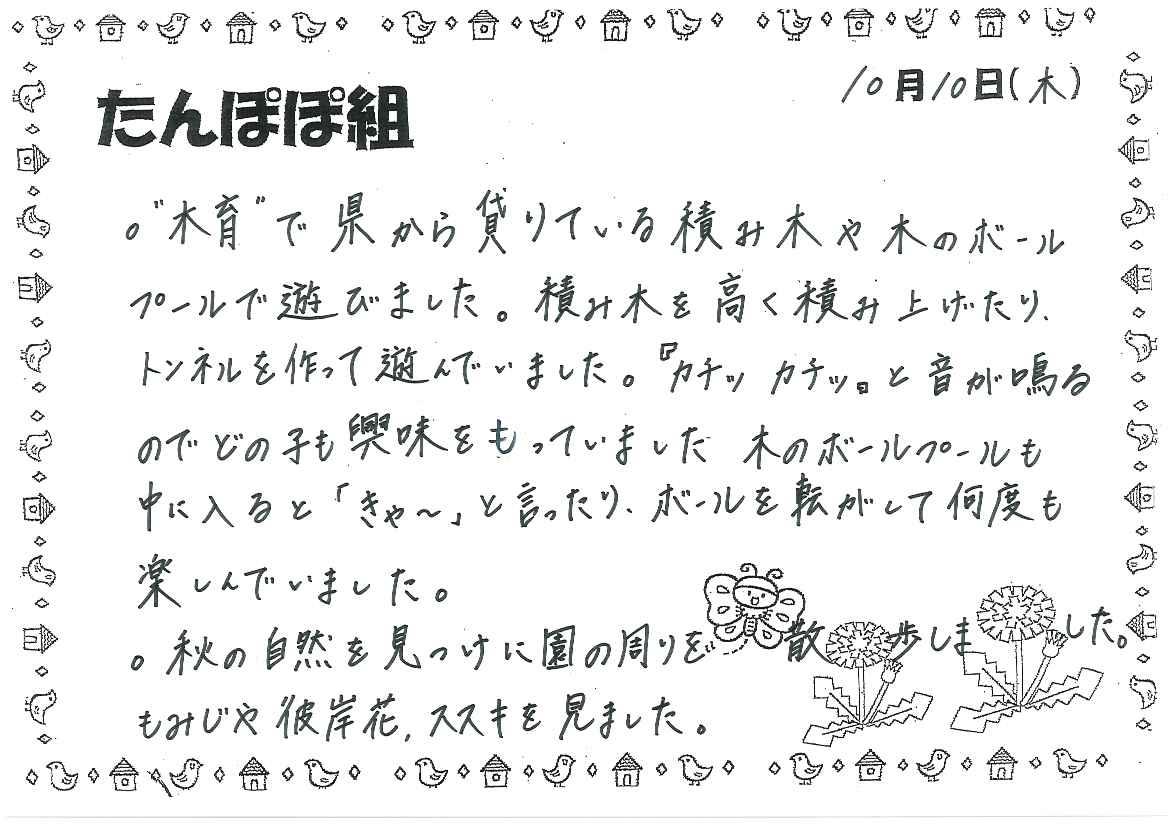 たんぽぽ組
10月10日(木)
。"木育"で県から貸りている積み木や木のボール
プールで遊びました。積み木を高く積み上げたり、
トンネルを作って遊んでいました。『カチッ カチッ』と音が鳴る
のでどの子も興味をもっていました 木のボールプールも
中に入ると「きゃ〜」と言ったり、ボールを転がして何度も
楽しんでいました。
。秋の自然を見つけに園の周りを散歩しました。
もみじや彼岸花,ススキを見ました。